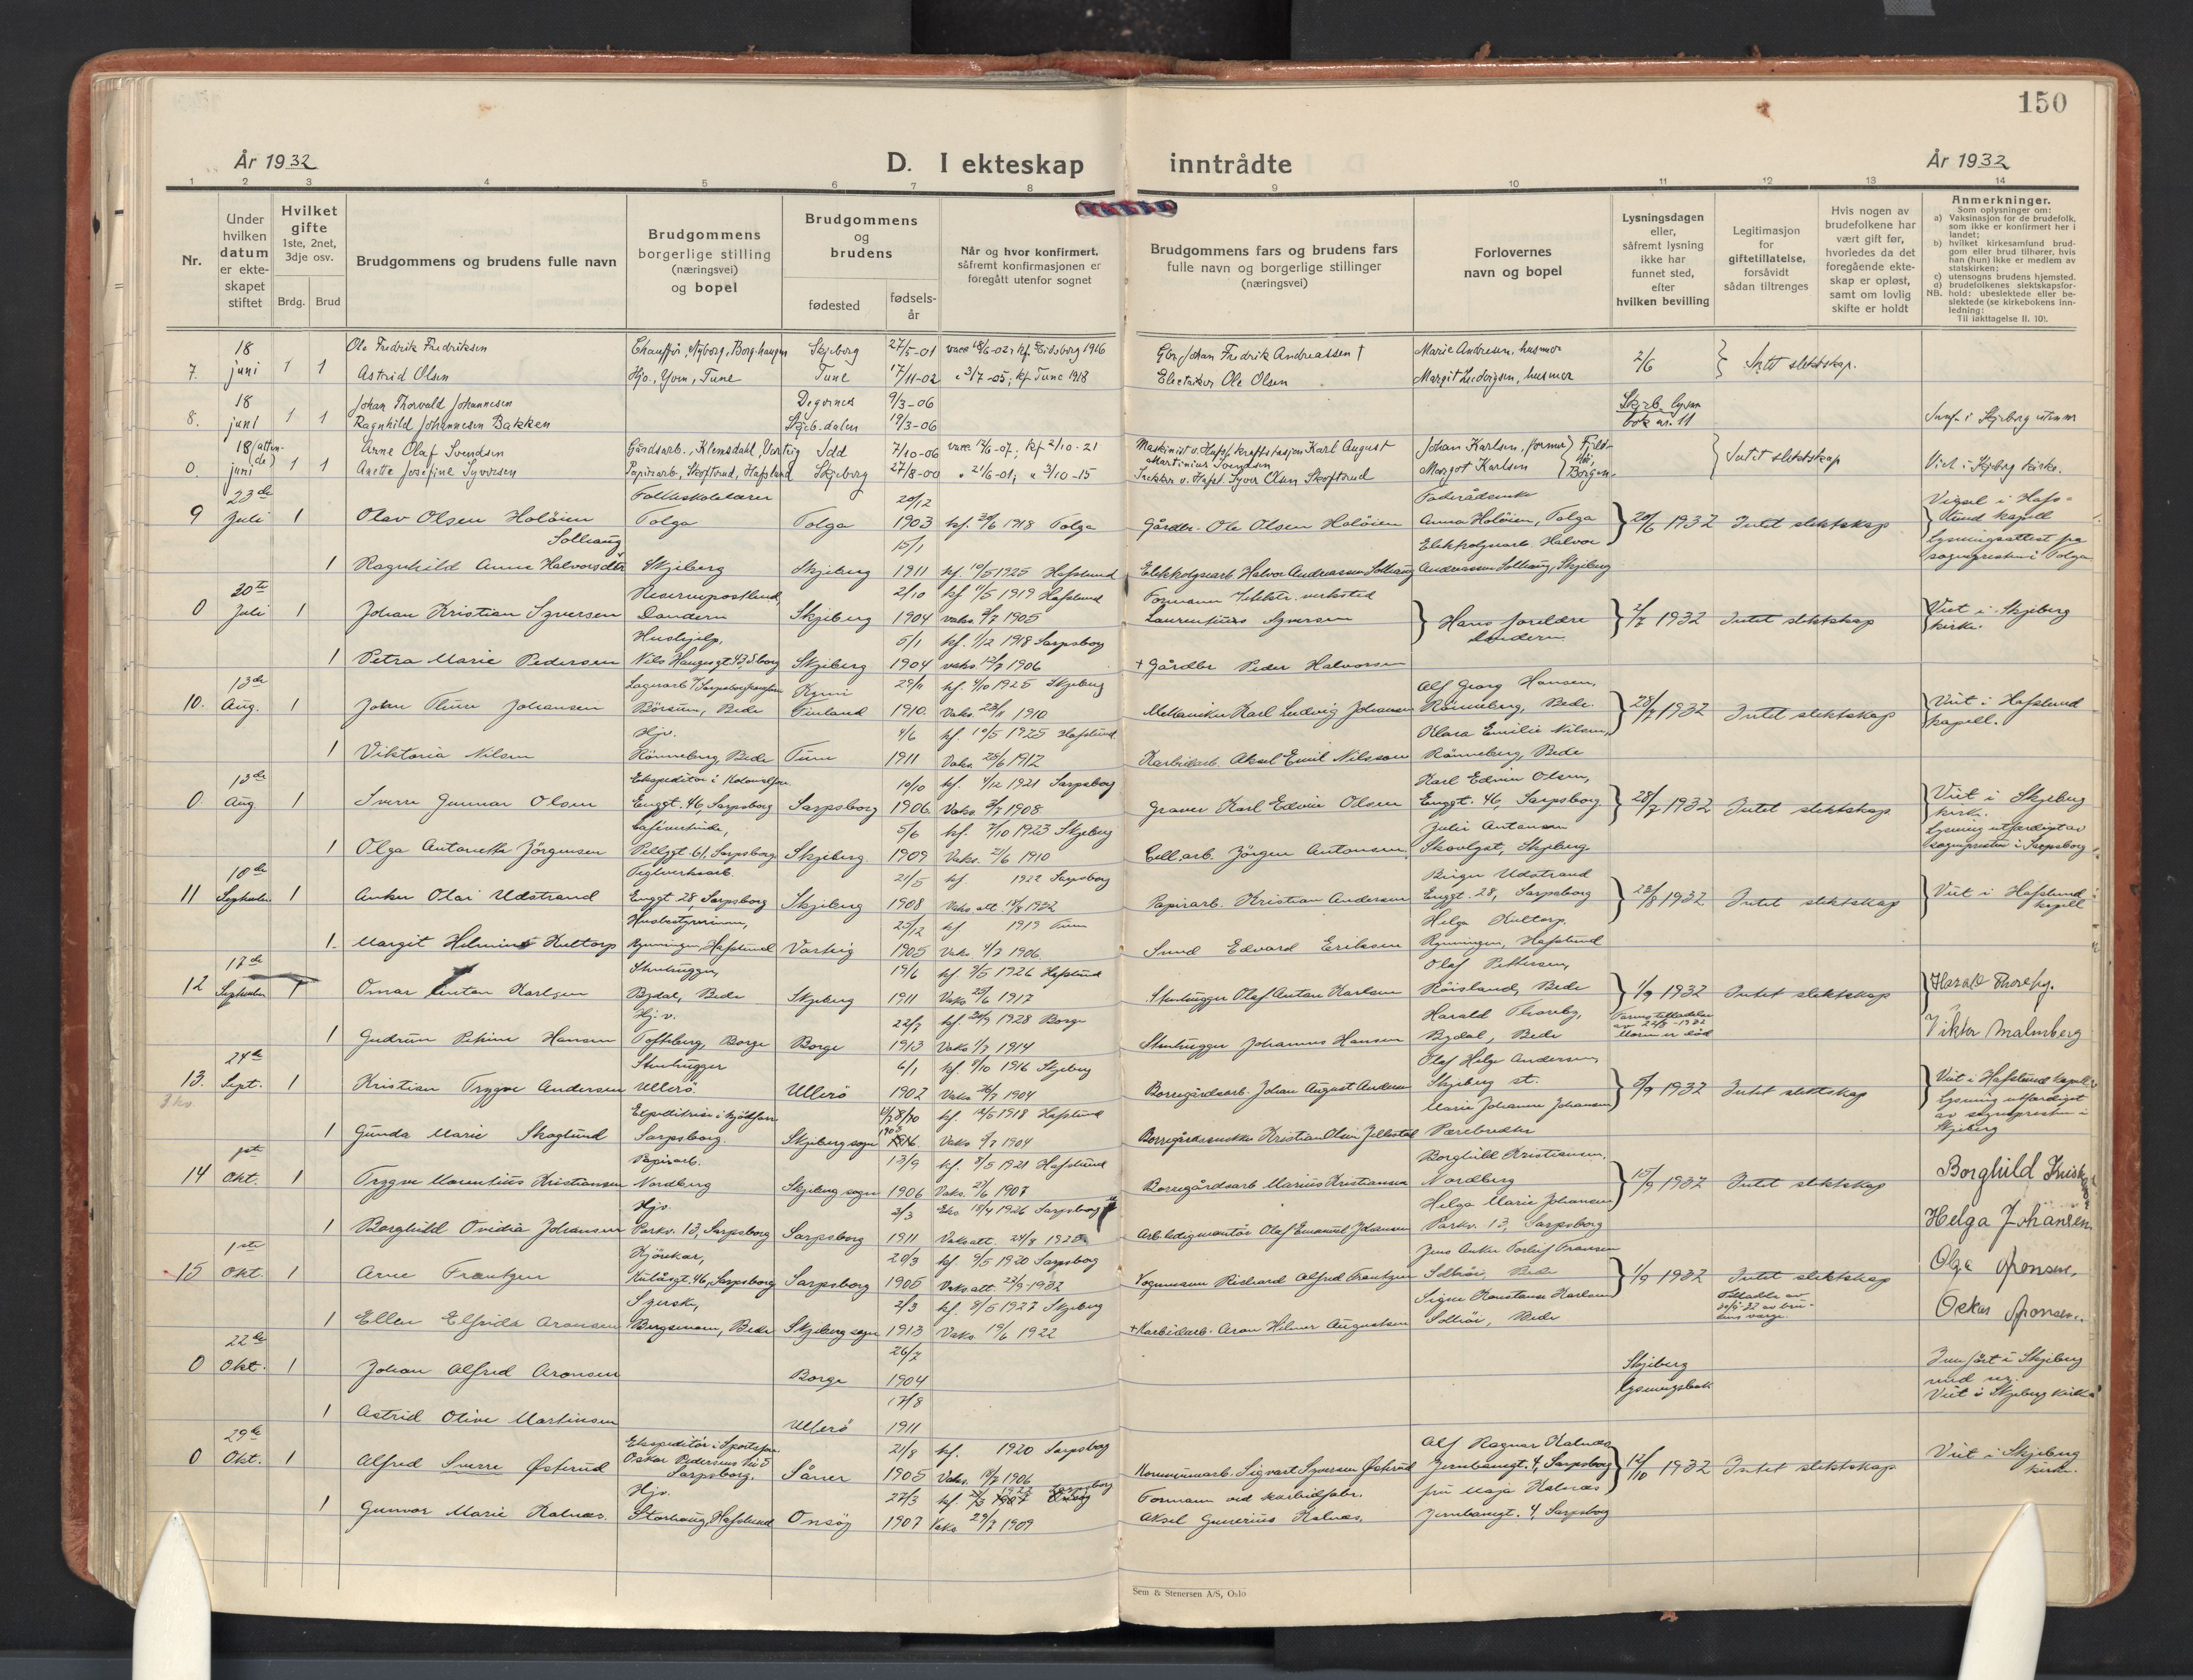 150
År 1932
D. I ekteskap inntrådte
År 1932
1 2 3 4 5 6 7 8 9 10 11 12 13 14
Nr.
Under hvilken datum er ekte-skapet stiftet
Hvilket gifte 1ste, 2net, 3dje osv.
Brdg. Brud
Brudgommens og brudens fulle navn
Brudgommens borgerlige stilling (næringsvei) og bopel
Brudgommens og brudens
fødested
fødsels-år
Når og hvor konfirmert, såfremt konfirmasjonen er foregått utenfor sognet
Brudgommens fars og brudens fars fulle navn og borgerlige stillinger (næringsvei)
Forlovernes navn og bopel
Lysningsdagen eller, såfremt lysning ikke har funnet sted, efter hvilken bevilling
Legitimasjon for giftetillatelse, forsåvidt sådan tiltrenges
Hvis nogen av brudefolkene har vært gift før, hvorledes da det foregående ekte-skap er opløst, samt om lovlig skifte er holdt
Anmerkninger.
Som oplysninger om:
a) Vaksinasjon for de brudefolk, som ikke er konfirmert her i landet;
b) hvilket kirkesamfund brud-gom eller brud tilhører, hvis han (hun) ikke er medlem av statskirken;
c) utensogns brudens hjemsted.
d) brudefolkenes slektskapsfor-hold: ubeslektede eller be-slektede (se kirkebokens inn-ledning:
NB. Til iakttagelse II. 10).
7. 18 juni 1 1 Ole Fredrik Fredriksen Skjeberg 27/5-01 Gbr. Johan Fredrik Andreassen † Marie Andresen, husmor 2/6 Intet slektskap.
Astrid Olsen Hjv., Tune Tune 17/11-02 3/7-05; kf. Tune 1918 Ole Olsen Margit Ludvigsen, husmor
8. 18 juni 1 1 Johan Thorvald Johannesen Degernes 9/3-06
Ragnhild Johannesen Bakken Skjeb.dalen 19/3-06 bok nr. 11
0. 18 (atten-de) juni 1 1 Arne Olaf Svendsen Gårdsarb., Klemsdahl, Varteig Idd 7/10-06 kf. 2/10-21 Maskinist v. Hafsl. kraftstasjon Karl August Martinius Svendsen Johan Karlsen, former Intet slektskap Viet i Skjeberg kirke.
Agete Josefine Syversen Papirarb., Skoftrud, Hafslund Skjeberg 27/8-00 21/6-01; 3/10-15 v. Hafsl. Syver Olsen Skoftrud Margot Karlsen Borgen
9 23de Juli 1 Olav Olsen Holöien Folkeskolelærer Tolga Tolga 20/12 1903 kf. 30/6 1918 Tolga Gårdbr. Ole Olsen Holöien Anna Holöien, Tolga 20/6 1932 Intet slektskap Vigsel i Hafs-lund kapell
Solhaug
1 Ragnhild Anna Halvorsdtr Skjeberg Skjeberg 15/1 1911 kf. 10/5 1925 Hafslund Halvor Andreassen Solhaug Halvor Andreassen Solhaug, Skjeberg Lysningsattest fra sogneprest i Tolga
0 30te Juli 1 Johan Kristian Syversen Reservepostbud, Dondern Skjeberg 2/10 1904 kf. 11/5 1919 Hafslund vaks. 3/7 1905 Formann Elektr. verksted Laurentius Syversen Hans forelöre Dondern 2/7 1932 Intet slektskap Viet i Skjeberg kirke.
1 Petra Marie Pedersen Hushjelp, Nils Haugesgt. 43, S.borg Skjeberg 5/1 1904 kf. 1/12 1918 Sarpsborg vaks. 12/7 1906 † Gårdbr. Peder Halvorsen
10. 13de Aug. 1 Johan Thure Johansen Börsum, Bede Kymi Finland 29/11 1910. kf. 4/10 1925 Skjeberg Vaks. 23/11 1910 Mekaniker Karl Ludvig Johansen Alf Georg Hansen, Rönneberg, Bede 28/7 1932 Intet slektskap Viet i Hafslund kapell.
1 Viktoria Nilsen Hjv. Rönneberg, Bede Tune 4/6 1911 kf. 10/5 1925 Hafslund Vaks. 28/6 1912 Karbidarb. Aksel Emil Nilssen Klara Emilie Nilsen, Rönneberg, Bede
0 13de Aug. 1 Sverre Gunnar Olsen Ekspeditör i Kolonialforr. Enggt. 46, Sarpsborg Sarpsborg 10/10 1906. kf. 4/12 1921 Sarpsborg Vaks. 3/7 1908 Graver Karl Edvin Olsen Karl Edvin Olsen, Enggt. 46, Sarpsborg 28/7 1932 Intet slektskap Viet i Skjeberg kirke.
1 Olga Antonette Jörgensen Caféverlinde, Pellygt. 61, Sarpsborg Skjeberg. 5/6 1909 kf. 7/10 1923 Skjeberg Vaks. 21/6 1910 Cell.arb. Jörgen Antonsen Julie Antonsen Skovlyst, Skjeberg Lysning utferdiget av sogneprest i Sarpsborg
11 10de September 1 Anker Olai Udstrand Teglverksarb. Enggt. 28, Sarpsborg Skjeberg 21/5 1908 kf. 1922 Sarpsborg Vaks.att. 18/8 1932 Papirarb. Kristian Andersen Birger Udstrand Enggt. 28, Sarpsborg 23/8 1932 Intet slektskap Viet i Hafslund kapell
1. Margit Helmine Kultorp Husbestyrerinne, Rynningen, Hafslund Varteig 25/12 1905 kf. 1919 Tune Vaks. 4/7 1906. Smed Edvard Eriksen Helga Kultorp. Rynningen, Hafslund
12 17de September 1 Omar Anton Karlsen Stenhugger, Bydal, Bede Skjeberg 19/6 1911 kf. 9/5 1926 Hafslund Vaks. 25/6 1917 Stenhugger Olaf Anton Karlsen Olaf Pettersen, Röisland, Bede 1/9 1932 Intet slektskap Harald Thoreby.
1 Gudrun Petrine Hansen Hj.v. Toftsberg, Borge Borge 22/7 1913 kf. 30/9 1928 Borge Vaks. 1/7 1914 Stenhugger Johannes Hansen Harald Thoreby, Bydal, Bede Farens tilladelse av 22/8-1932 Moren er död Viktor Malmberg
13. 24de Sept. 1 Kristian Trygve Andersen Stenhugger Ullerö. Ullerö 6/1 1902 kf. 8/10 1916 Skjeberg Vaks. 26/7 1904 Borregårdsarb. Johan August Andersen Olaf Helge Andersen, Skjeberg st. 5/9 1932 Intet slektskap Viet i Hafslund kapell.
1 Gunda Marie Skoglund Sarpsborg. Skjeberg sogn kf. 12/5 1918 Hafslund Vaks. 9/7 1904 Kristian Olsen Marie Johanne Johansen Lysning utferdiget av sogneprest i Skjeberg
14 1ste Okt. 1 Trygve Morentius Kristiansen Papirarb. Nordberg Skjeberg sogn 13/9 1906 kf. 8/5 1921 Hafslund Vaks. 27/6 1907 Borregårdsarb. Marius Kristiansen Borghild Kristiansen, Nordberg 15/9 1932 Intet slektskap Borghild Kristiansen
1 Borghild Ovidia Johansen Hjv. Parkv. 13, Sarpsborg Sarpsborg 2/3 1911 18/4 1926 Sarpsborg Vaks.att. 24/8 1920 Olaf Emanuel Johansen Helga Marie Johansen Parkv. 13, Sarpsborg Helga Johansen
15 1ste Okt. 1 Arne Frantzen Kjörekar, Kulåsgt. 46, Sarpsborg Sarpsborg 20/3 1905 kf. 9/5 1920 Sarpsborg Vaks.att. 23/9-1932 Vognmann Richard Alfred Frantzen Jens Anker Torleif Fransen Solhöi, Bede 1/9 1932 Intet slektskap Olga Aronsen.
1 Ellen Elfrida Aronsen Syerske, Bergsmoen, Bede Skjeberg sogn 2/3 1913 kf. 8/5 1927 Skjeberg Vaks. 19/6 1922 † Karbidarb. Aron Hilmer Augustsen Signe Konstanse Karlsen Solhöi, Bede Oskar Aronsen.
0 22de Okt. 1 Johan Alfred Aronsen Borge 26/7 1904 Skjeberg lysningsbok Innfört i Skjeberg med nr.
1 Astrid Olive Martinsen Ullerö 17/8 1911 Viet i Skjeberg kirke
0 29de Okt. 1 Alfred Sverre Østerud Ekspeditör i Sportsforr. Sarpsborg. Såner 21/8 1905 kf. 1920 Sarpsborg Vaks. 18/7 1906 Kommunearb. Sigvart Syversen Østerud Alf Ragnar Kalnæs Jernbanegt. 4, Sarpsborg 12/10 1932 Intet slektskap Viet i Skjeberg kirke.
1 Gunvor Marie Kalnæs. Hjv. Storhaug, Hafslund Onsöy 27/3 1907 Vaks. 29/7 1909 Formann ved karbidfabr. Aksel Gunerius Kalnæs. fru Maja Kalnæs Jernbanegt. 4, Sarpsborg
Sem & Stenersen A/S, Oslo